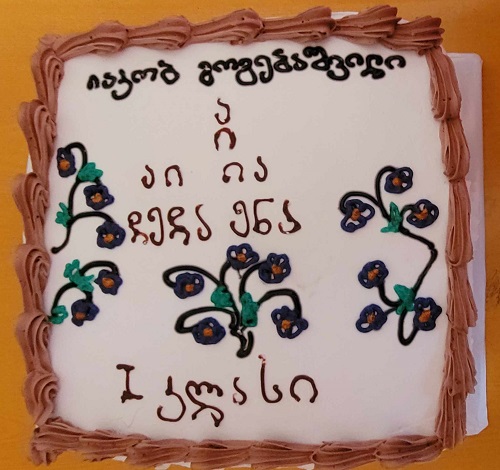 იაკობ გოგებაშვილი
ა
ი
აი ია
დედა ენა
I კლასი